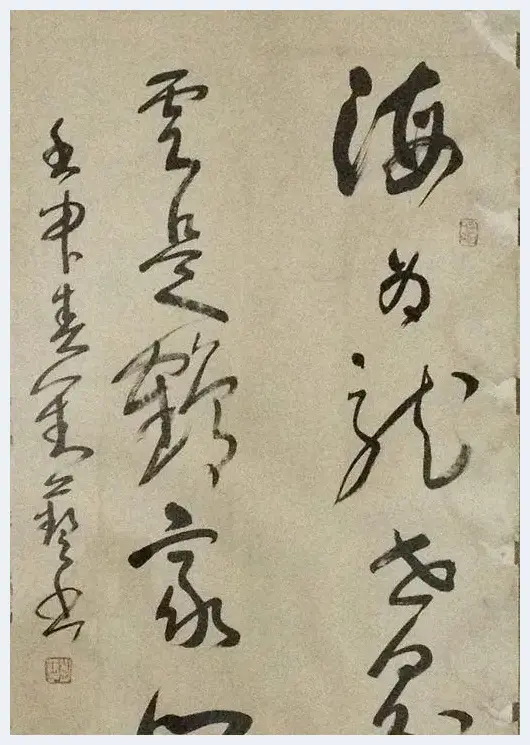 海為龍世界
雲是鶴家
壬申春藝書